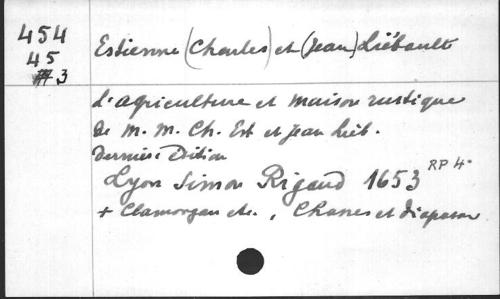 454
45
3
Estienne (Charles) et (Jean) Liébault
L'agriculture et maison rustique
de M. M. Ch. Est et Jean Lieb.
Dernière Edition
Lyon Simon Rigaud 1653 RP 4°
+ Clamorgan etc., Chasses et